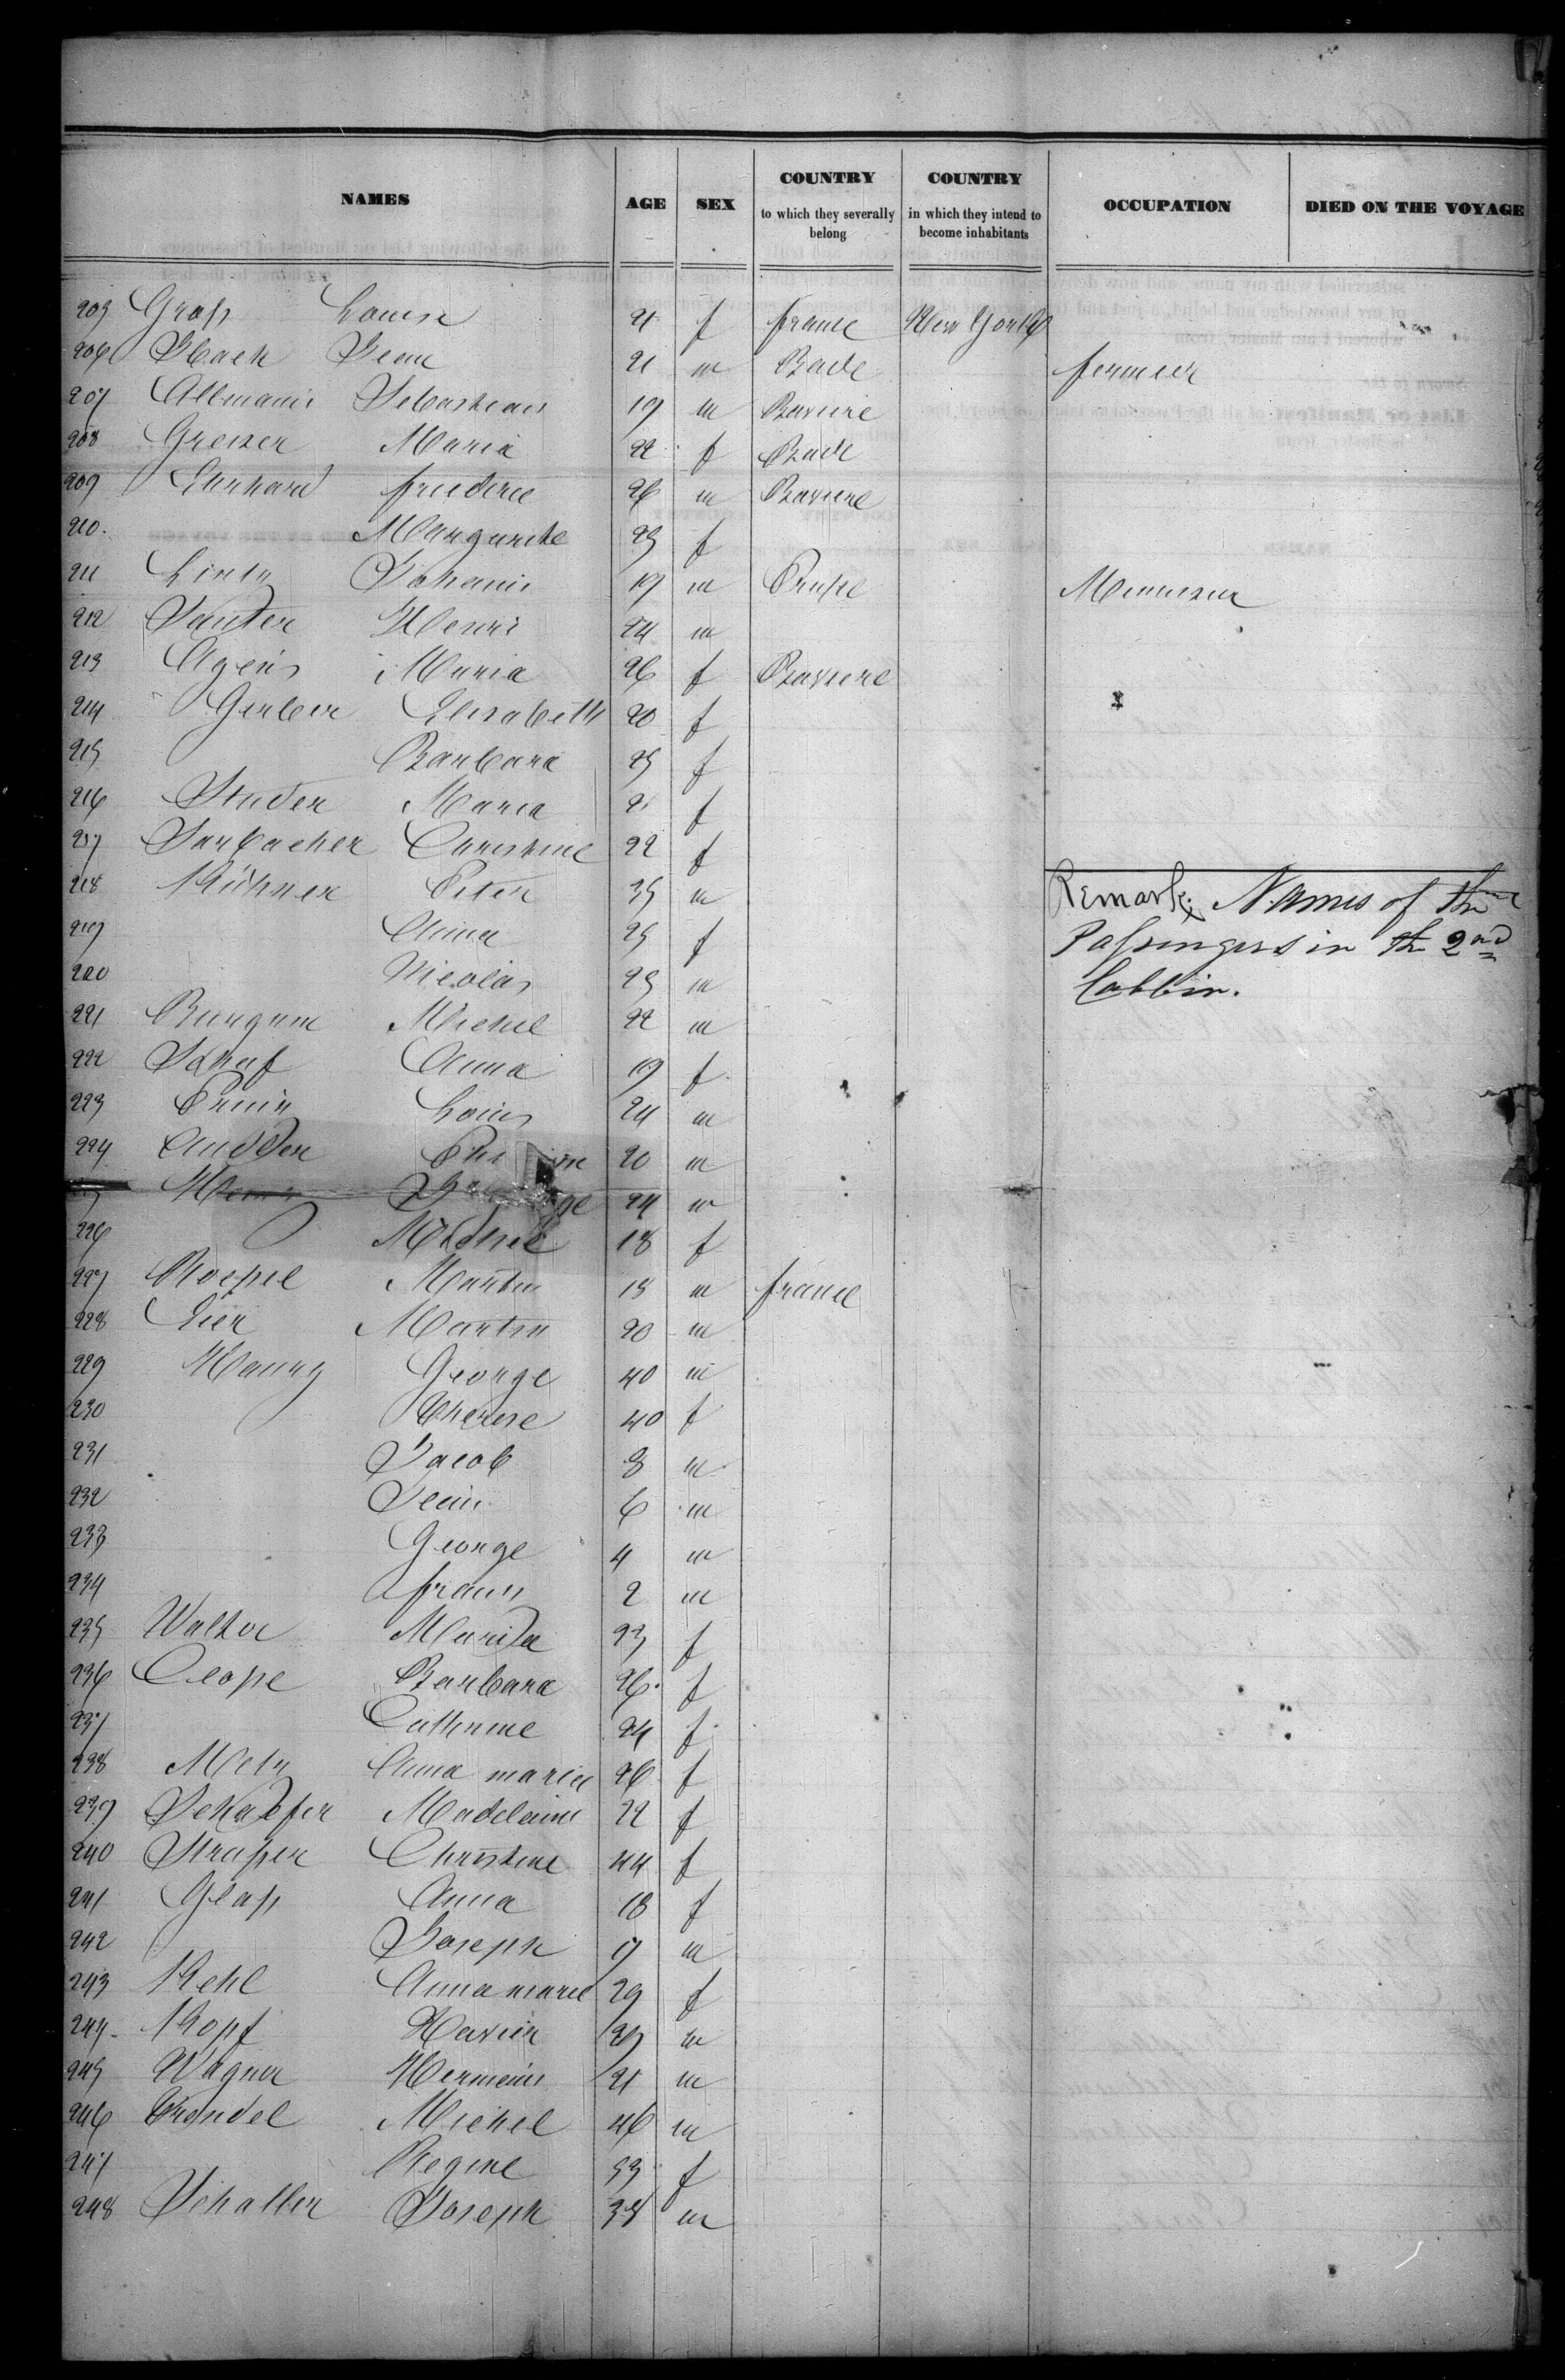 NAMES AGE SEX COUNTRY to which they severally belong COUNTRY in which they intend to become inhabitants OCCUPATION DIED ON THE VOYAGE
205 Grass Louise 21 f france New York
206 Jean 21 m Bade fermier
207 Allmann Sebastian 19 m Baviere
208 Greiser Maria 22 f Bade
209 Erhard friederic 26 m Baviere
210. Marguerite 25 f
211 Lintz Johann 19 m Prusse Menuisier
212 Sauter Henri 24 m
213 Agens Maria 26 f Baviere
214 Gerber Elisabeth 20 f
215 Barbara 25 f
216 Studer Maria 21 f
217 Surbacher Christine 22 f
218 Hühner Peter 35 m
Remark: Names of the
219 Anna 25 f
Passengers in the 2nd
220 Nicolas 25 m
Cabbin.
221 Michel 22 m
222 Schaf Anna 19 f
223 Louis 24 m
224 20 m
24 m
226 18 f
227 Martin 18 m france
228 Eier Martin 20 m
229 Haury George 40 m
230 Therese 40 f
231 Jacob 8 m
232 Jean 6 m
233 George 4 m
234 franz 2 m
235 Walter 23 f
236 Closse Barbara 26 f
237 Catherine 24 f
238 Metz Anna maria 26 f
239 Schaefer Madelaine 22 f
240 Strasser Christine 44 f
241 Glass Anna 18 f
242 Joseph 17 m
243 Kehl Anna marie 29 f
244 Kopf Xavier 29 m
245 Wagner Hermann 21 m
246 Trondel Michel 46 m
247 Regine 53 f
248 Schaller Joseph 38 m